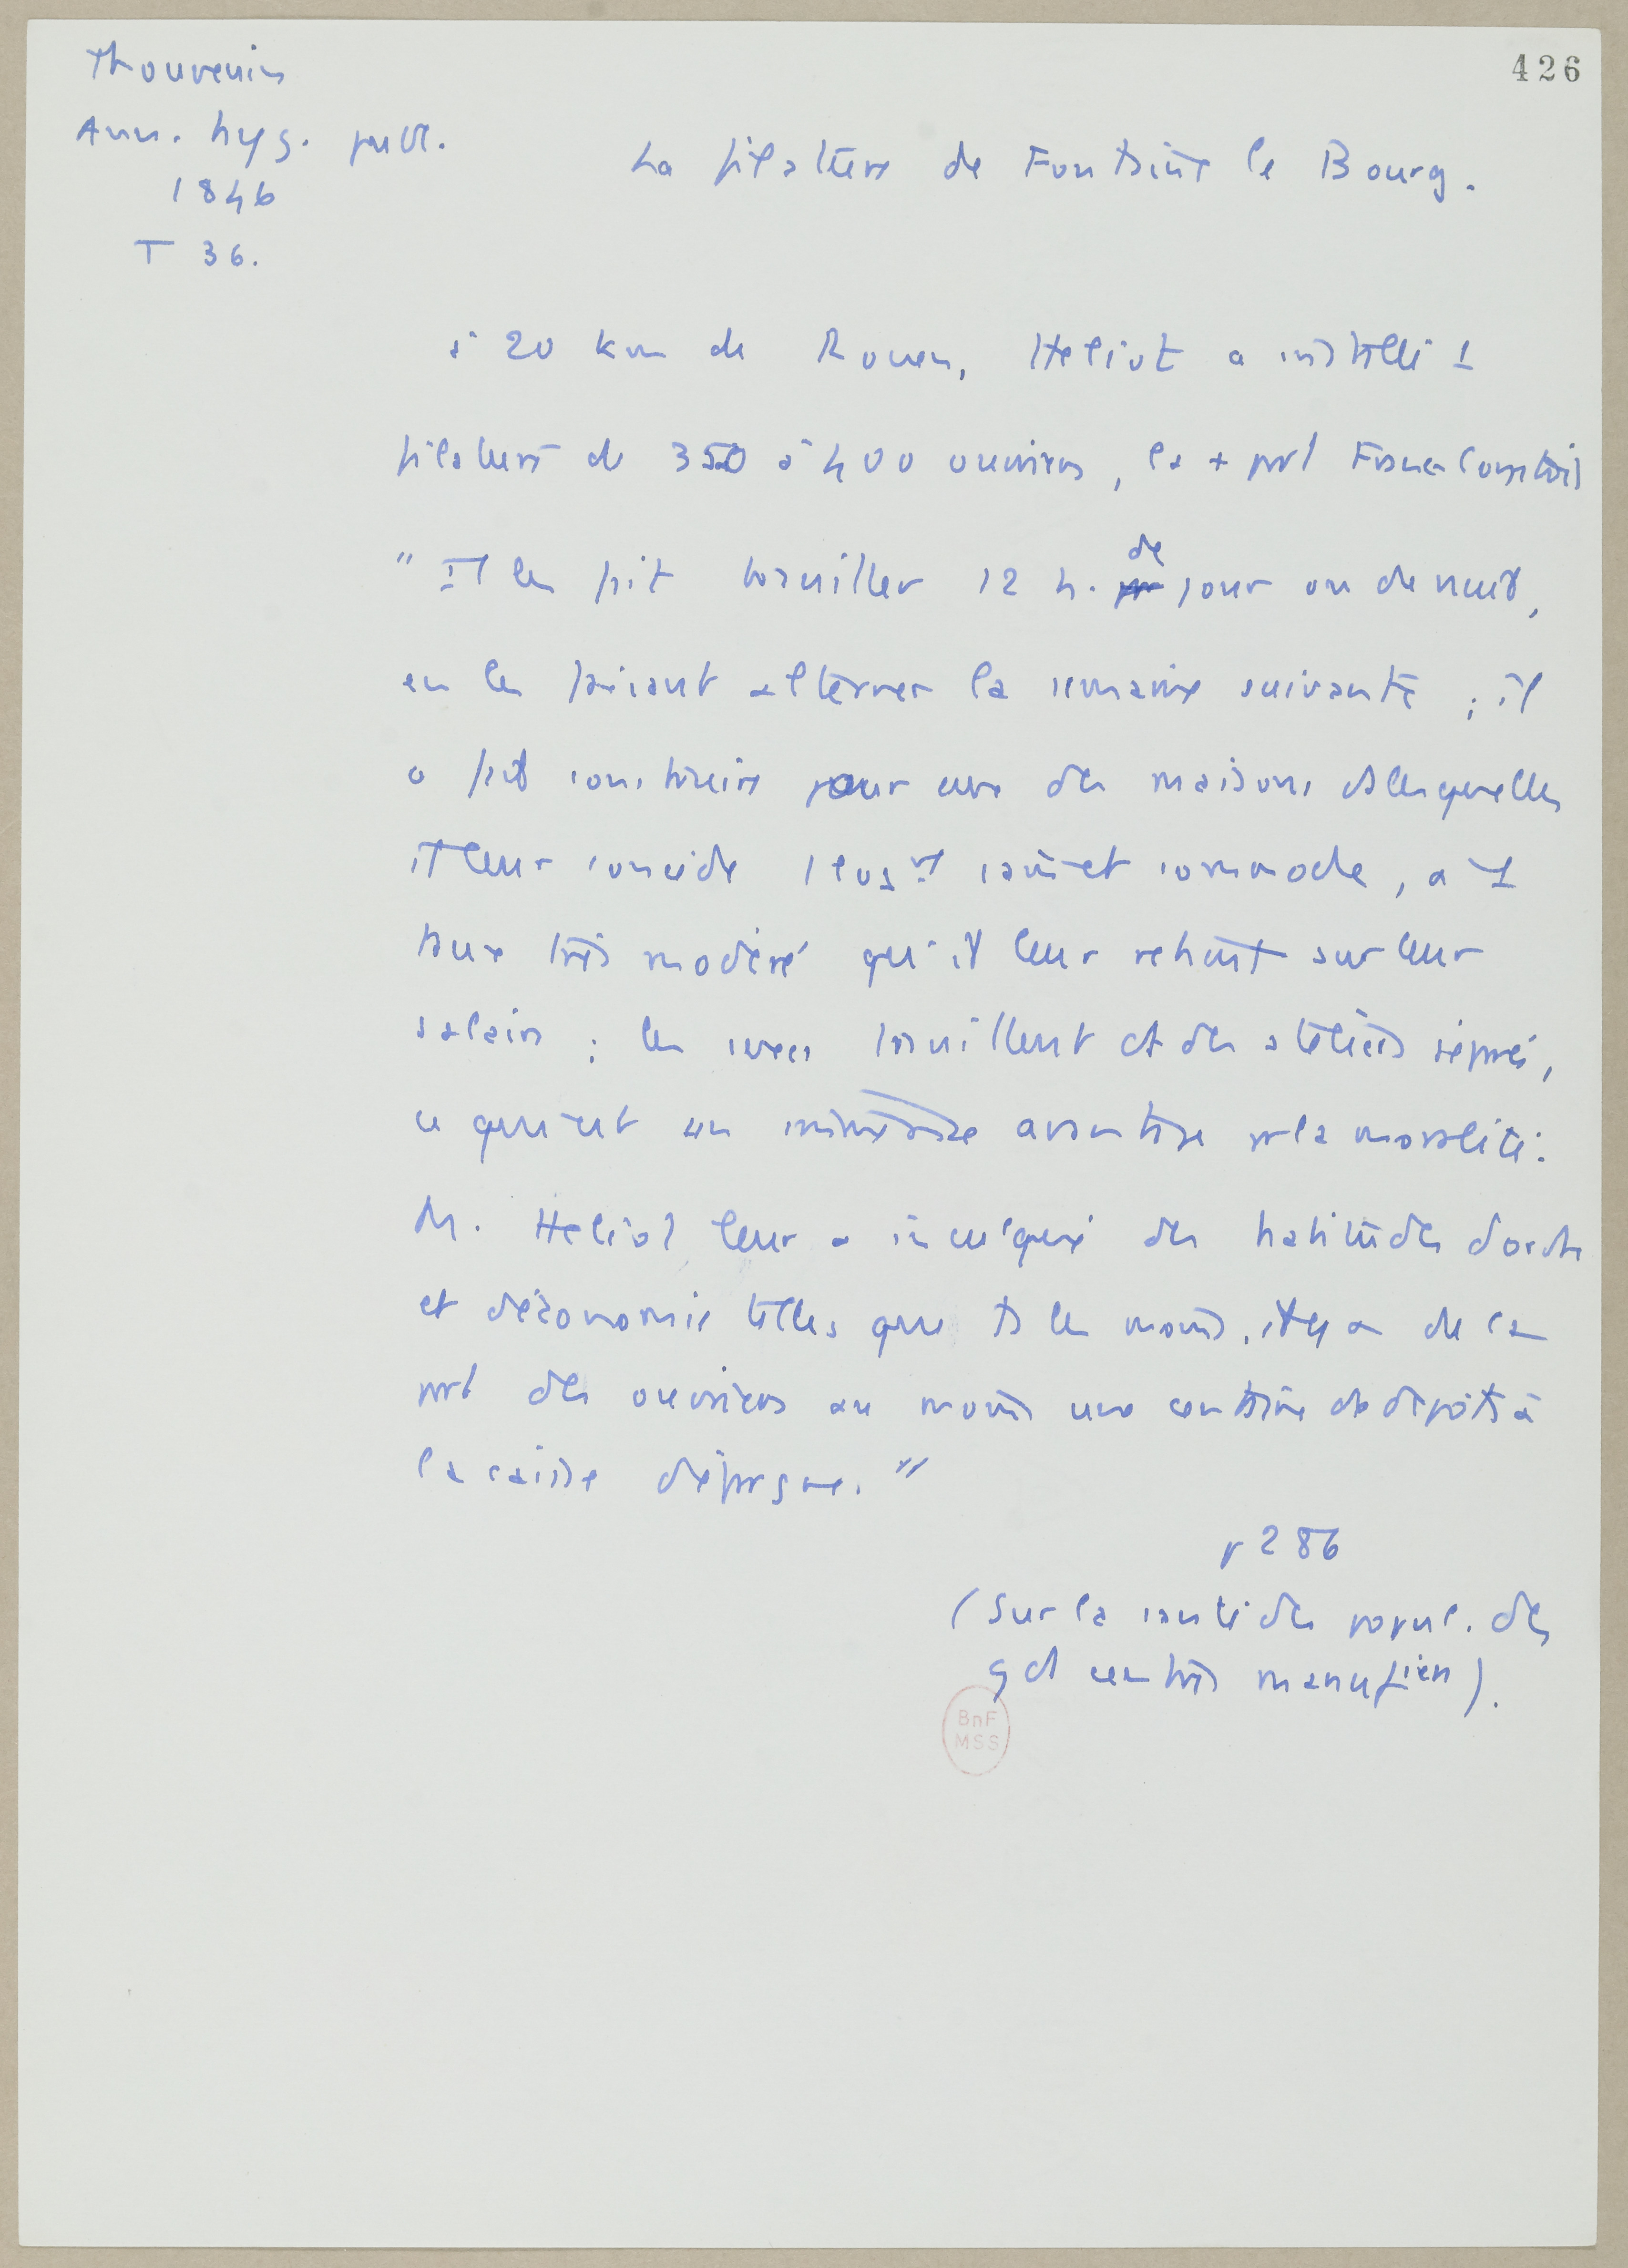 Thouvenin
Ann. hyg. publ.
1846
T 36.
426
La filature de Fontaine le Bourg.
à 20 km de Rouen, Heliot a installé 1
filature de 350 à 400 ouvriers, la + part Francs Comtois
" Il les fait travailler 12 h. de jour ou de nuit,
en les faisant alterner la semaine suivante ; il
a fait construire pour eux des maisons ds lesquelles
il leur concède 1 logt sain et commode, à 1
taux très modéré qu'il leur retient sur leur
salaire ; les sexes travaillent ds des ateliers séparés,
ce qui est un immense avantage pr la moralité :
M. Heliot leur a inculqué des habitudes d'ordre
et d'économie telles que ts les mois, il y a de la
part des ouvriers au moins une centaine de dépôts à
la caisse d'épargne. "
p 286
(Sur la santé des popul. des
gd centres manufien).
BnF
MSS